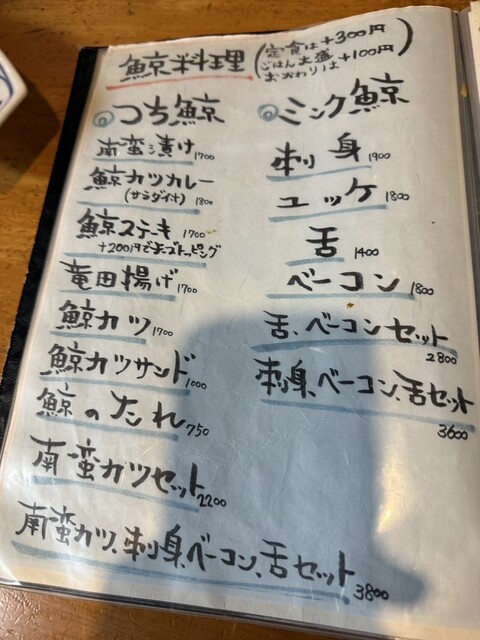 鯨料理
(定食は+300円
ごはん大盛
おかわりは+100円)
つち鯨
南蛮漬け 1700
鯨カツカレー
(サラダ付) 1800
鯨ステーキ 1700
+200円でチーズトッピング
竜田揚げ 1700
鯨カツ 1700
鯨カツサンド 1000
鯨のたれ 750
南蛮カツセット 2200
南蛮カツ、刺身、ベーコン、舌セット 3800
ミンク鯨
刺身 1900
ユッケ 1800
舌 1400
ベーコン 1800
舌、ベーコンセット 2800
刺身、ベーコン、舌セット 3600